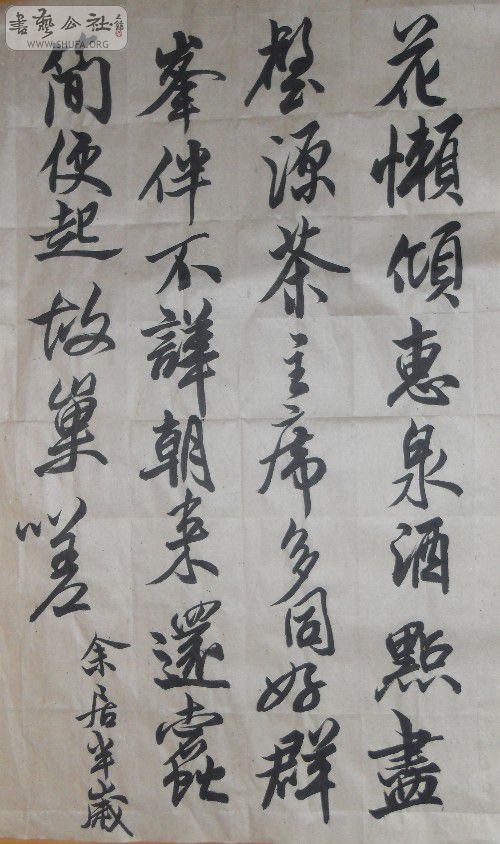 花懶傾惠泉酒點盡
壑源茶主席多同好群
峯伴不譁朝来還蠹
簡便起故巢嗟
余居半歲
書藝公社
WWW.SHUFA.ORG